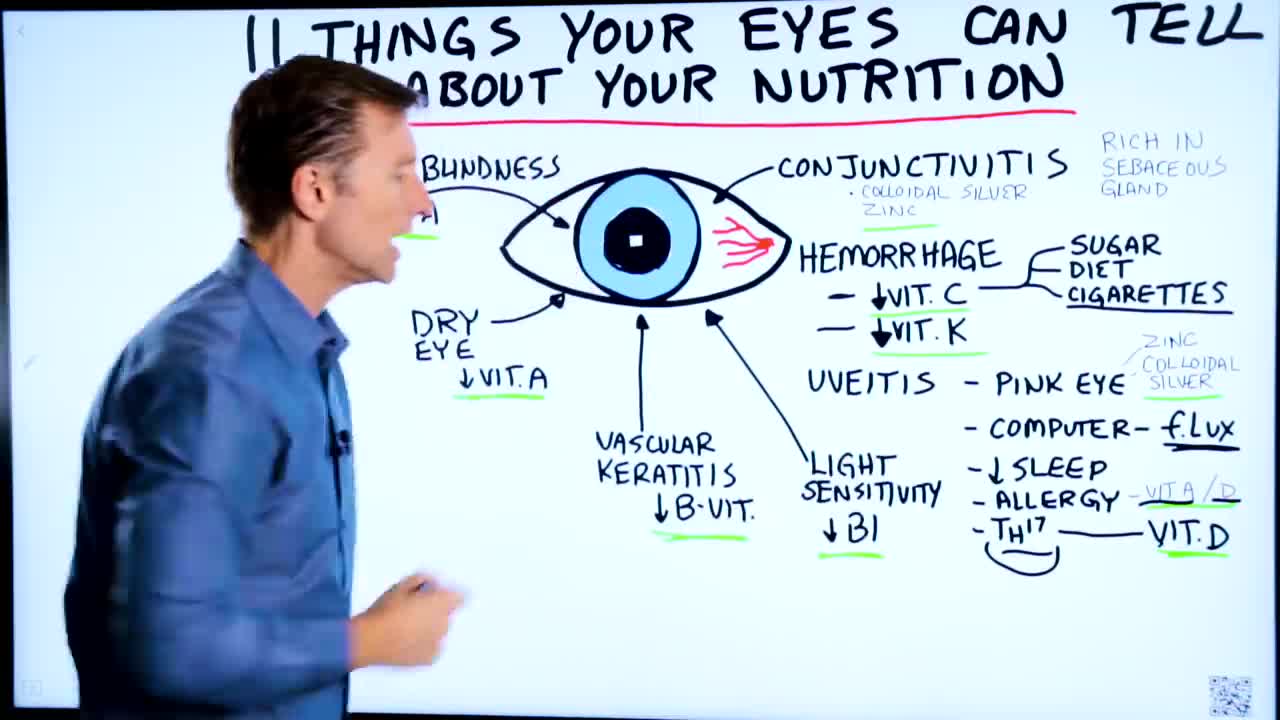 11 THINGS YOUR EYES CAN TELL
ABOUT YOUR NUTRITION
BLINDNESS
A
DRY
EYE
↓VIT. A
VASCULAR
KERATITIS
↓ B-VIT.
LIGHT
SENSITIVITY
↓ B1
CONJUNCTIVITIS
• COLLOIDAL SILVER
ZINC
RICH IN
SEBACEOUS
GLAND
HEMORRHAGE
– ↓VIT. C
– ↓VIT. K
SUGAR
DIET
CIGARETTES
UVEITIS - PINK EYE
ZINC
COLLOIDAL
SILVER
- COMPUTER - f.lux
- ↓ SLEEP
- ALLERGY - VIT A/D
- TH17 — VIT. D